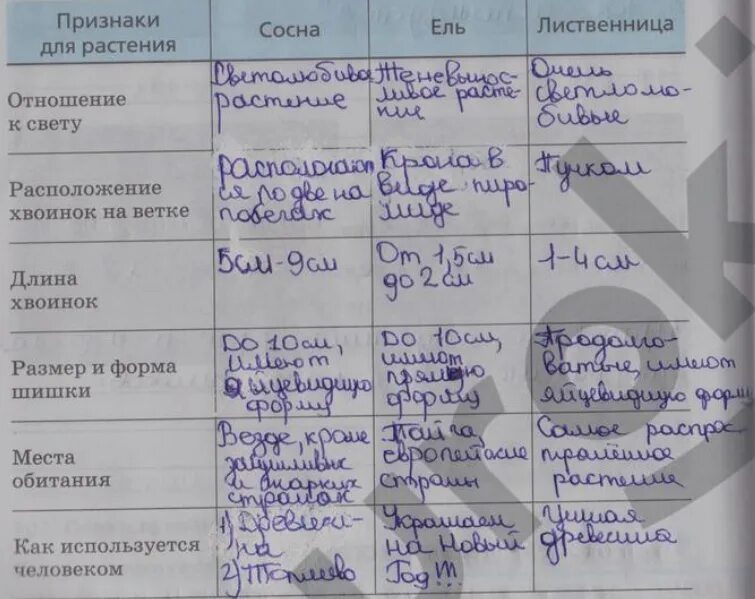 Признаки для растения
Сосна
Ель
Лиственница
Отношение к свету
Светолюбивое
растение
Теневынос-
ливое расте-
ние
Очень
светлолю-
бивые
Расположение хвоинок на ветке
распологают
ся по две на
побегах
Крона в
виде пиро-
миде
Пучком
Длина хвоинок
5см-9см
От 1,5см
до 2см
1-4см
Размер и форма шишки
До 10см,
имеют
яйцевидную
форму
До 10см,
имиют
прямую
форму
Продолго-
ватые, имеют
яйцевидную форму
Места обитания
Везде, кроме
засушливых
и жарких
странах
Тайга,
европейские
страны
Самое распрос-
транённое
растение
Как используется человеком
1) Древеси-
на
2) Топливо
Украшаем
на Новый
Год!!!
Ценная
древесина
urok.